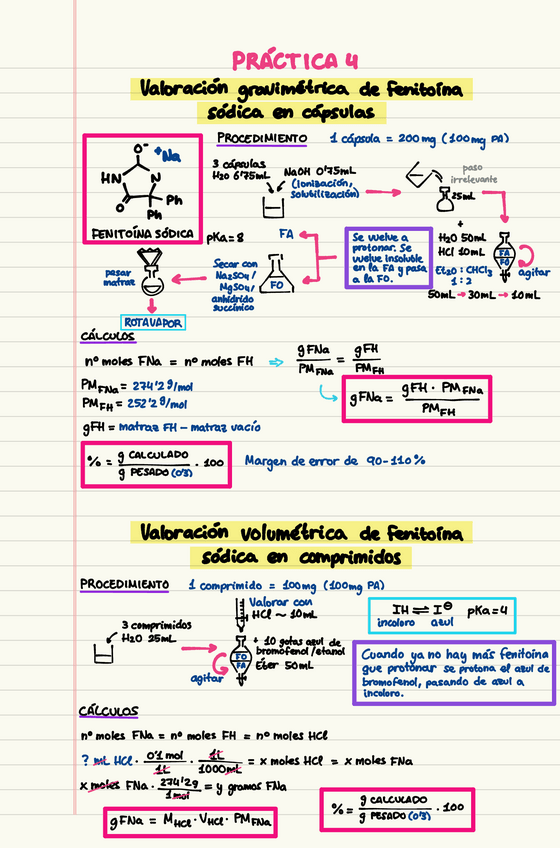 PRÁCTICA 4
Valoración gravimétrica de fenitoína
sódica en cápsulas
PROCEDIMIENTO 1 cápsula = 200mg (100mg PA)
O⁻ ⁺Na
HN N
O Ph
Ph
FENITOÍNA SÓDICA
pKa = 8
3 cápsulas
H2O 6'75mL
NaOH 0'75mL
(Ionización,
solubilización)
paso
irrelevante
25mL
+
H2O 50mL
HCl 10mL
Et2O : CHCl3
1 : 2
50mL → 30mL → 10mL
FA
FO
agitar
Se vuelve a
protonar. Se
vuelve insoluble
en la FA y pasa
a la FO.
FA
FO
Secar con
Na2SO4 /
MgSO4 /
anhídrido
succínico
pasar
matraz
ROTAVAPOR
CÁLCULOS
nº moles FNa = nº moles FH ⇒ gFNa / PM FNa = gFH / PM FH
PM FNa = 274'2 g/mol
PM FH = 252'2 g/mol
gFNa = gFH · PM FNa / PM FH
gFH = matraz FH − matraz vacío
% = g CALCULADO / g PESADO (0'3) · 100
Margen de error de 90-110%
Valoración volumétrica de fenitoína
sódica en comprimidos
PROCEDIMIENTO 1 comprimido = 100mg (100mg PA)
3 comprimidos
H2O 25mL
Valorar con
HCl ~ 10mL
+ 10 gotas azul de
bromofenol/etanol
Éter 50mL
FO
FA
agitar
IH ⇌ I⊖ pKa = 4
incoloro azul
Cuando ya no hay más fenitoína
que protonar se protona el azul de
bromofenol, pasando de azul a
incoloro.
CÁLCULOS
nº moles FNa = nº moles FH = nº moles HCl
? mL HCl · 0'1 mol / 1L · 1L / 1000mL = x moles HCl = x moles FNa
x moles FNa · 274'2g / 1mol = y gramos FNa
gFNa = M HCl · V HCl · PM FNa
% = g CALCULADO / g PESADO (0'3) · 100